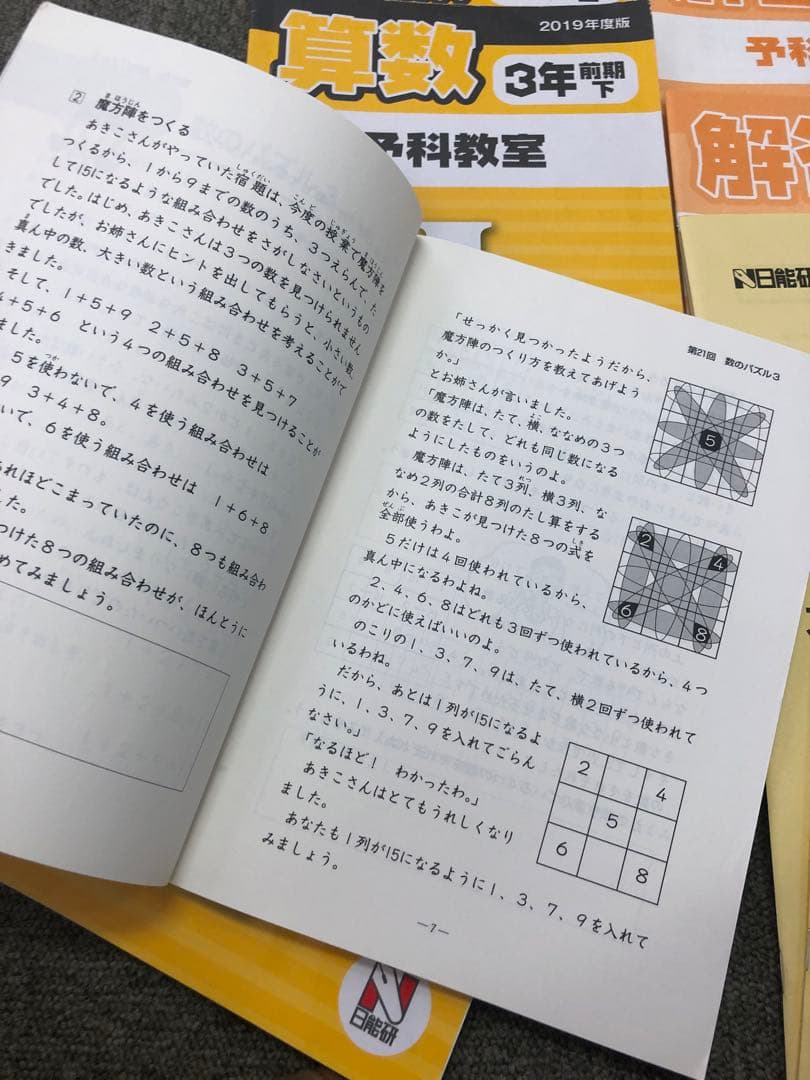 算数
2019年度版
3年 前期 下
予科教室
予科
日能研
2 魔方陣をつくる
まほうじん
あきこさんがやっていた宿題は、今度の授業で魔方陣を
しゅくだい こんど じゅぎょう まほうじん
つくるから、1から9までの数のうち、3つえらんで、た
して15になるような組み合わせをさがしなさいというもの
でした。はじめ、あきこさんは3つの数を見つけられません
でしたが、お姉さんにヒントを出してもらうと、小さい数、
真ん中の数、大きい数という組み合わせを考えることがで
ま
きました。
そして、1+5+9 2+5+8 3+5+7
4+5+6 という4つの組み合わせを見つけることが
ました。
5を使わないで、4を使う組み合わせは
つか
9 3+4+8。
いで、6を使う組み合わせは 1+6+8
した。
あれほどこまっていたのに、8つも組み合わ
した。
つけた8つの組み合わせが、ほんとうに
めてみましょう。
第21回 数のパズル3
「せっかく見つかったようだから、
魔方陣のつくり方を教えてあげよう
か。」
とお姉さんが言いました。
「魔方陣は、たて、横、ななめの3つ
よこ
の数をたして、どれも同じ数になる
ようにしたものをいうのよ。
魔方陣は、たて3列、横3列、な
れつ
なめ2列の合計8列のたし算をする
から、あきこが見つけた8つの式を
しき
全部使うわよ。
ぜんぶ
5だけは4回使われているから、
真ん中になるわよね。
2、4、6、8はどれも3回ずつ使われているから、4つ
のかどに使えばいいのよ。
のこりの1、3、7、9は、たて、横2回ずつ使われて
いるわね。
だから、あとは1列が15になるよ
うに、1、3、7、9を入れてごらん
なさい。」
「なるほど! わかったわ。」
あきこさんはとてもうれしくなり
ました。
あなたも1列が15になるように1、3、7、9を入れて
みましょう。
5
2 4
6 8
2 4
5
6 8
—7—
日能研